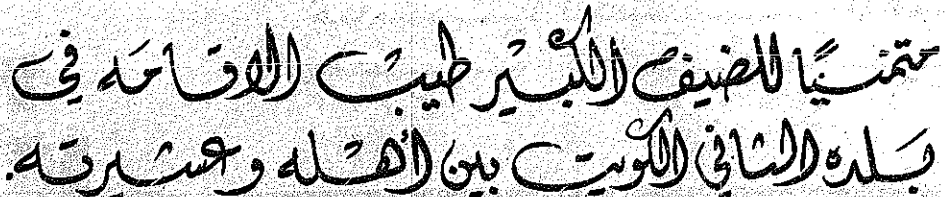 متمنيًا للضيف الكبير طيب الاقامه في
بلده الثاني الكويت بين أهله وعشيرته.